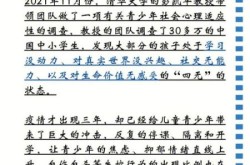 2021年11月份，清华大学的彭凯平教授带
领团队做了一项有关青少年社会心理适应
性的调查。教授的团队调查了30多万的中
国中小学生，发现大部分的孩子处于学习
没动力、对真实世界没兴趣、社交无能
力、以及对生命价值无感受的“四无”的状
态。
疫情才出现三年，却已经给儿童青少年带
来了巨大的冲击，反复的停课、隔离和开
学，让青少年的焦虑、抑郁情绪直线上